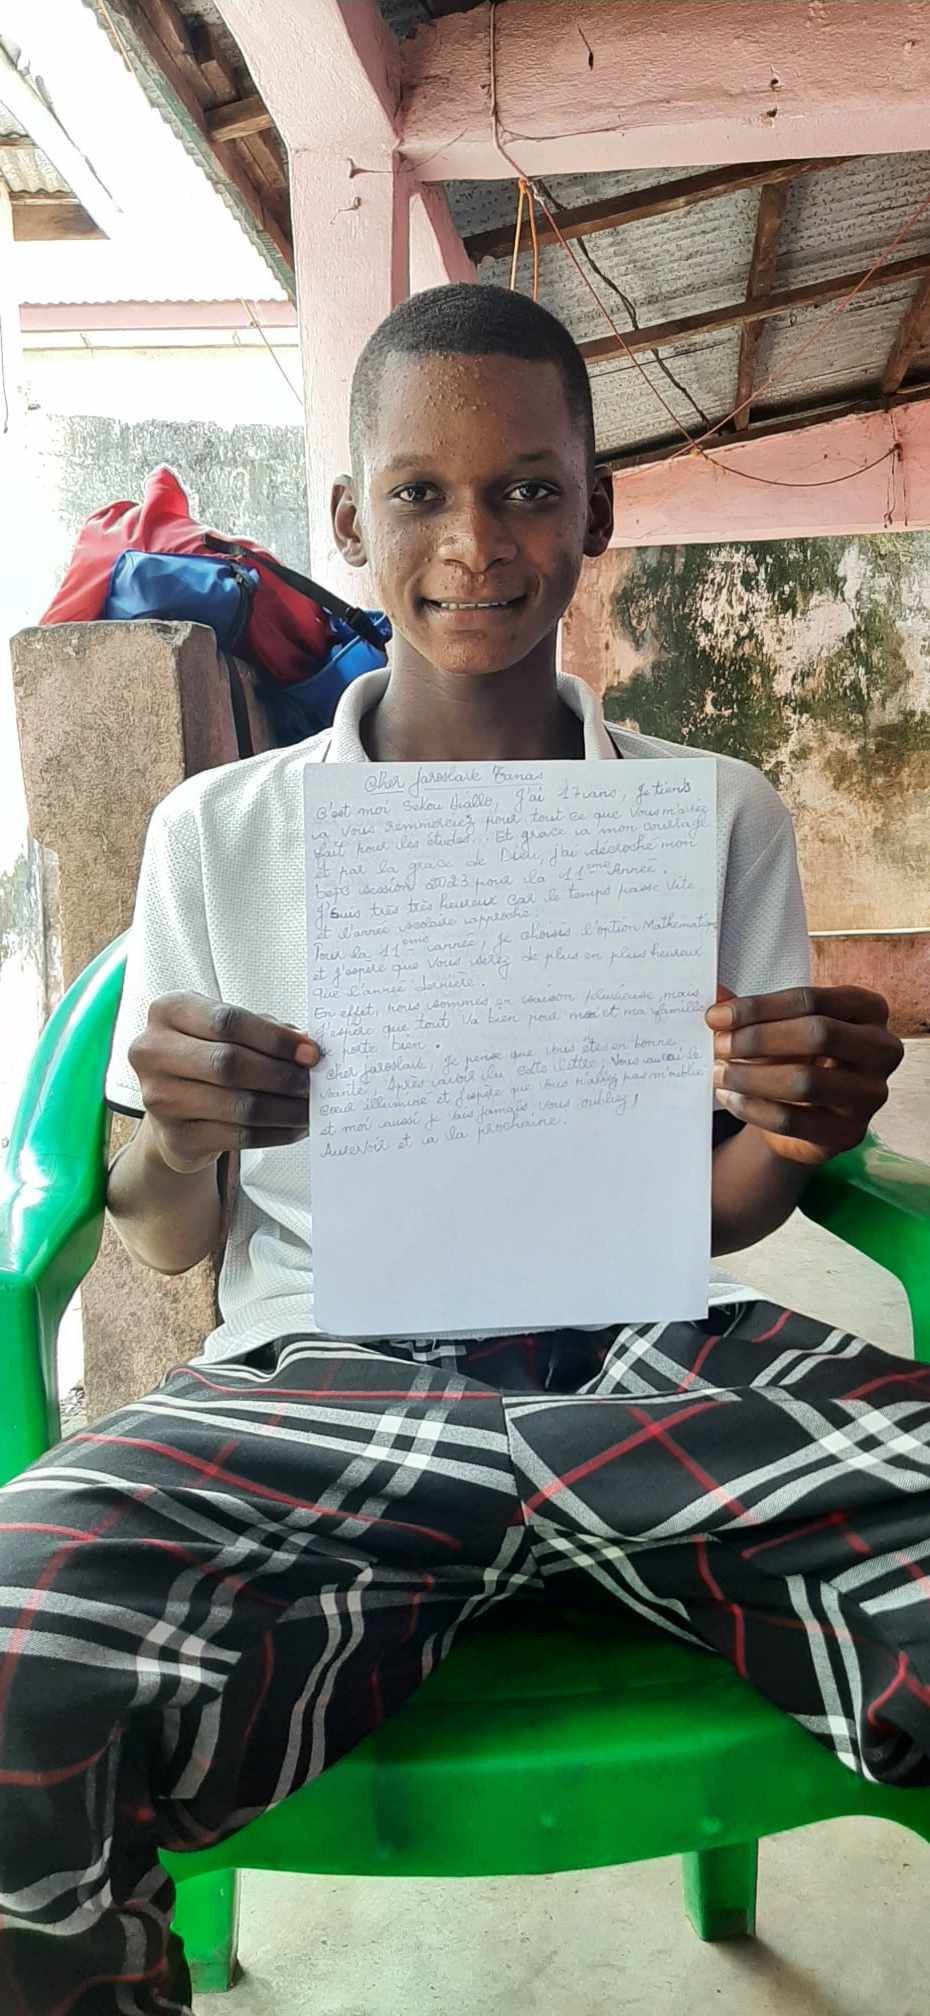 Cher Jaroslavk Tanas
C'est moi Sékou Diallo, J'ai 17 ans, Je tiens
à vous remmerciez pour tout ce que vous m'avez
fait pour les études... Et grace à mon courage
et par la grace de Dieu, j'ai décroché mon
bepc session 2023 pour la 11ème Année.
J'suis très très heureux car le temps passe vite
et l'année scolaire approche.
Pour la 11ème année, Je choisis l'option Mathématique
et j'espère que vous serez de plus en plus heureux
que l'année dernière.
En effet, nous sommes en saison pluvieuse, mais
J'espère que tout va bien pour moi et ma famille
se porte bien.
Cher Jaroslavk, Je pense que vous êtes en bonne
santé, Après avoir lu cette lettre, Vous aurai le
coeur illuminé et J'espère que vous n'allez pas m'oublié
et moi aussi je vais jamais vous oubliez!
Aurevoir et à la prochaine.